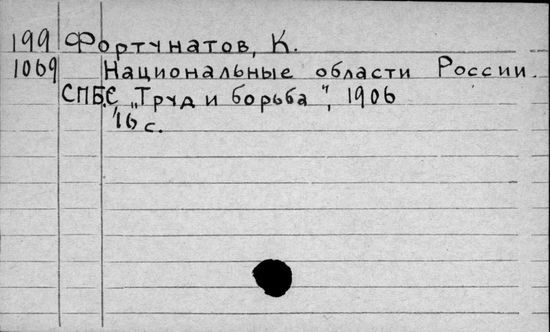 199 Фортунатов, К.
1069 Национальные области России.
СПБ, „Труд и борьба", 1906
16 с.